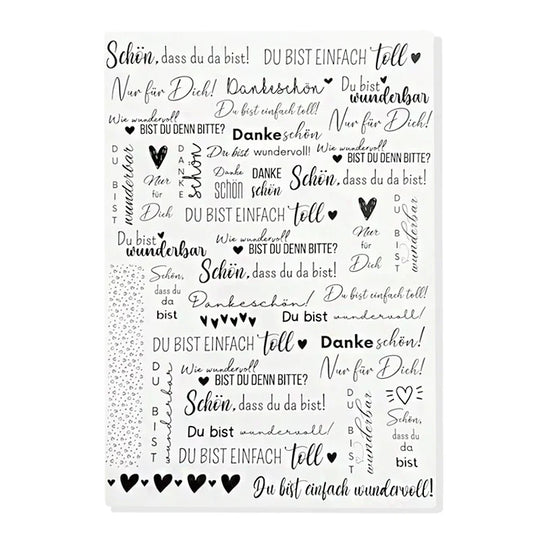 Schön, dass du da bist!
DU BIST EINFACH toll
Nur für Dich!
Dankeschön
Du bist
wunderbar
Du bist einfach toll!
Nur für Dich!
Wie wundervoll
BIST DU DENN BITTE?
Danke schön
DU BIST
wunderbar
Nur
für
Dich
DANKE
schön
Du bist wundervoll!
Wie wundervoll
BIST DU DENN BITTE?
Danke
SCHÖN
DANKE
schön
Schön, dass du da bist!
DU BIST EINFACH toll
Nur
für
Dich
DU BIST
wunderbar
Du bist
wunderbar
Wie wundervoll
BIST DU DENN BITTE?
Schön, dass du da bist!
Schön,
dass du
da
bist
Dankeschön!
Du bist einfach toll!
Du bist wundervoll!
DU BIST EINFACH toll
Danke schön!
DU BIST
wunderbar
Wie wundervoll
BIST DU DENN BITTE?
Nur für Dich!
Schön, dass du da bist!
DU BIST
wunderbar
Schön,
dass du
da
bist
Du bist wundervoll!
DU BIST EINFACH toll
Du bist einfach wundervoll!